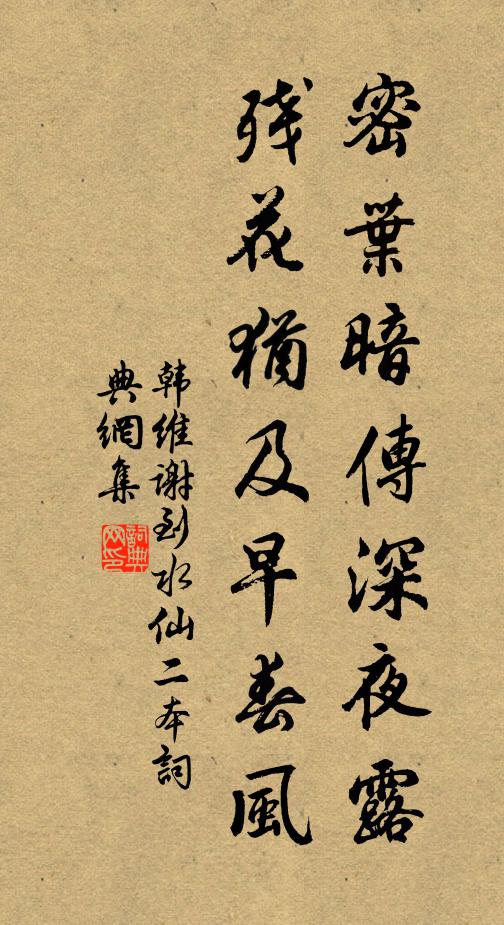 密葉暗傳深夜露
残花猶及早春風
韩維謝到水仙二本詞
典網集
詞典
网印